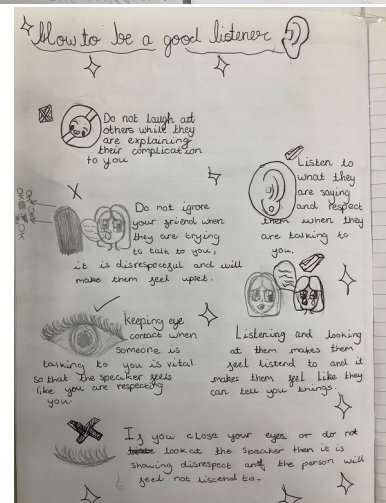 How to be a good listener
Do not laugh at
others while they
are explaining
their complication
to you
Listen to
what they
are saying
and respect
them when they
are talking to
you.
Do not ignore
your friend when
they are trying
to talk to you,
it is disrespectful and will
make them feel upset.
Keeping eye
contact when
someone is
talking to you is vital
so that the speaker feels
like you are respecting
you.
Listening and looking
at them makes them
feel listend to and it
makes them feel like they
can tell you things.
If you close your eyes or do not
look at the speaker then it is
showing disrespect and the person will
feel not listend to.